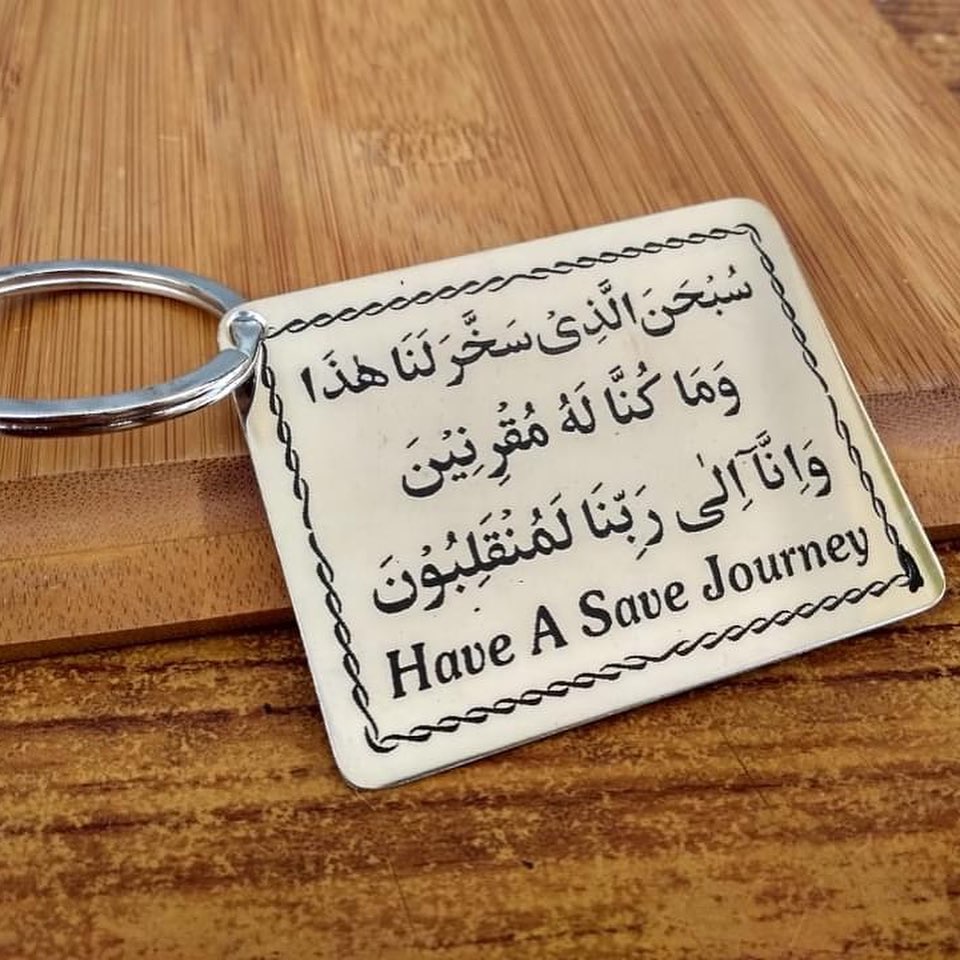 سُبْحَنَ الَّذِیْ سَخَّرَ لَنَا هٰذَا
وَمَا كُنَّا لَهُ مُقْرِنِیْنَ
وَاِنَّاۤ اِلٰی رَبِّنَا لَمُنْقَلِبُوْنَ
Have A Save Journey